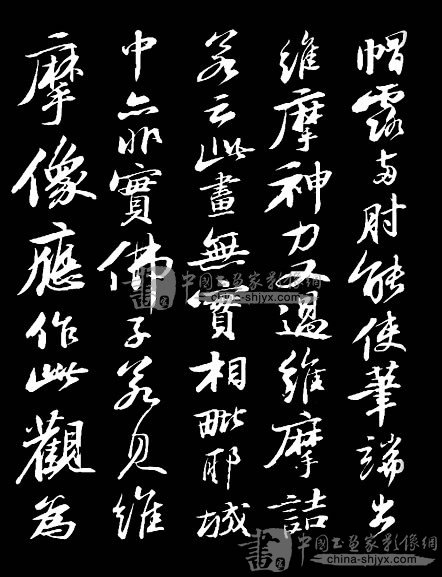 帽露兩肘能使筆端出
維摩神力又過維摩詰
若云此畫無實相毗耶城
中亦非實佛子若見維
摩像應作此觀為
書 中国书画家影像網
www.china-shjyx.com
書 中国书画家影像網
china-shjyx.com